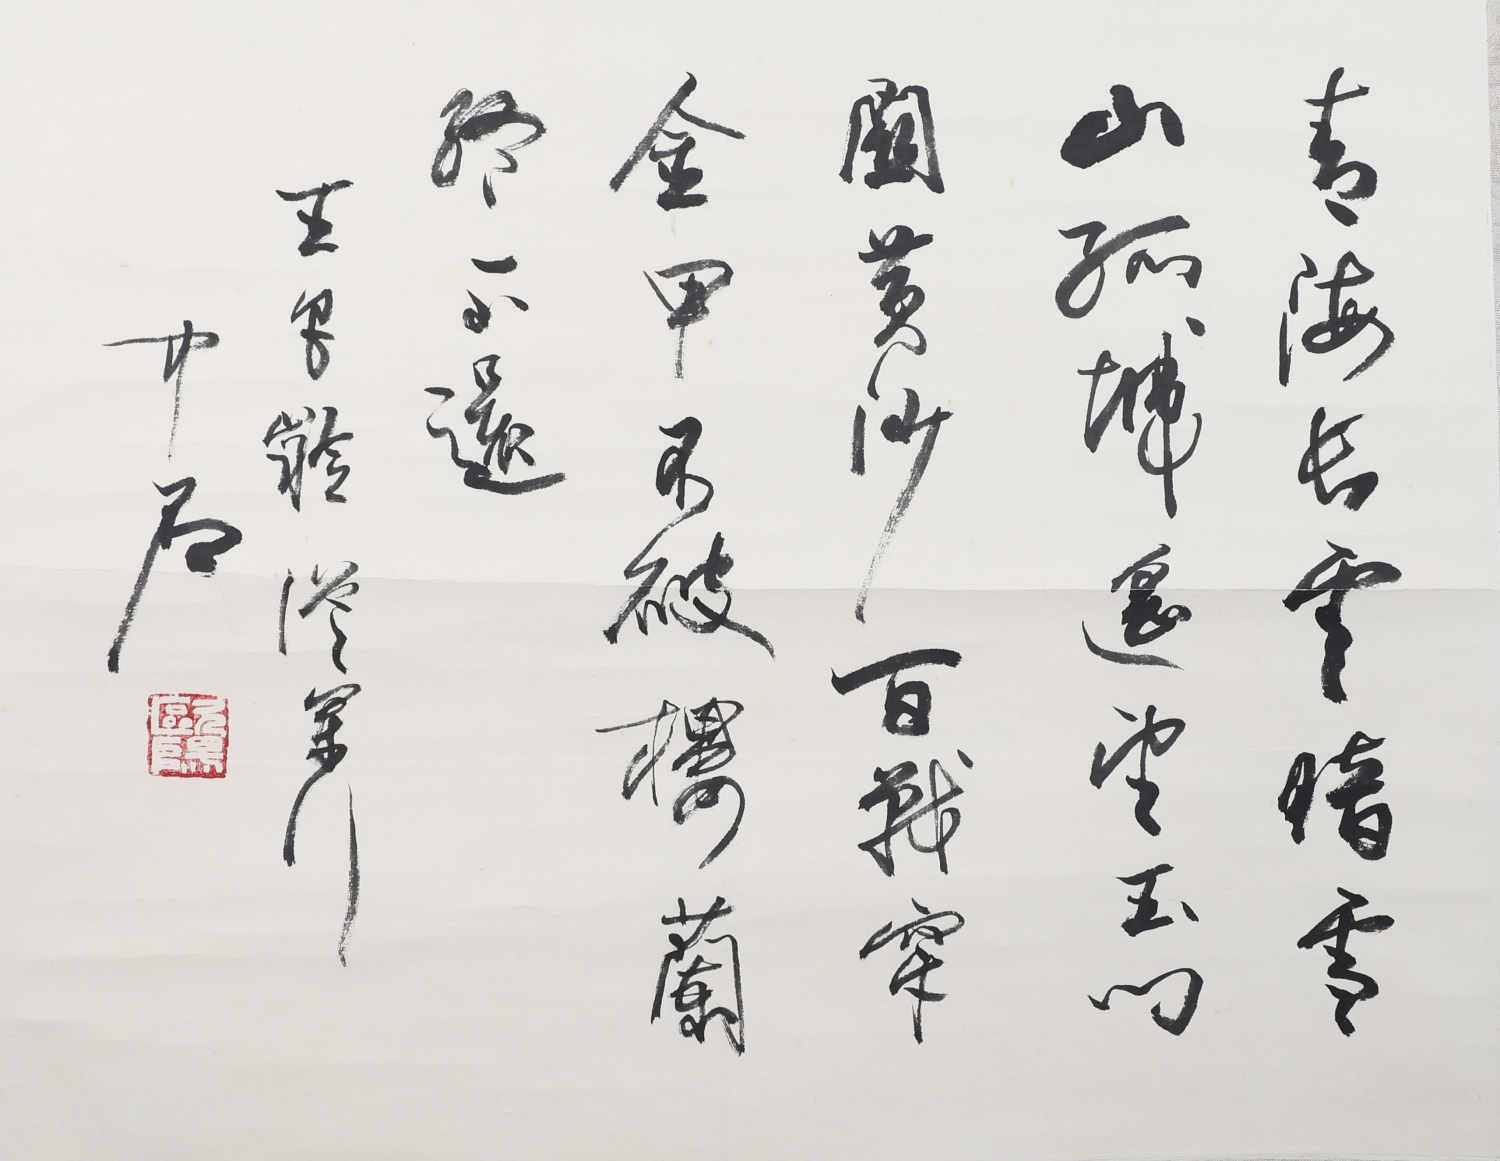 青海长雲暗雪
山孤城遥望玉门
關黄沙百戰穿
金甲不破樓蘭
終不還
王昌齡從軍行